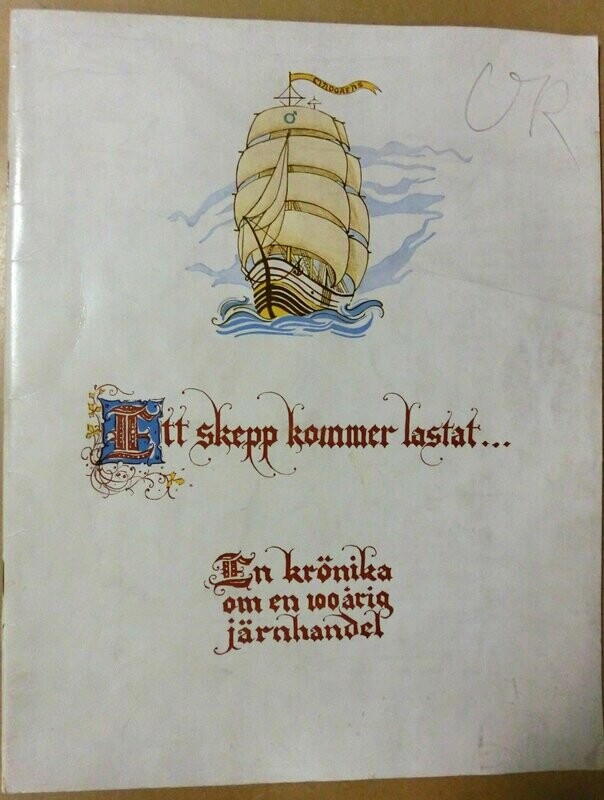 LINDGRENS
VR
Ett skepp kommer lastat...
En krönika
om en 100 årig
järnhandel